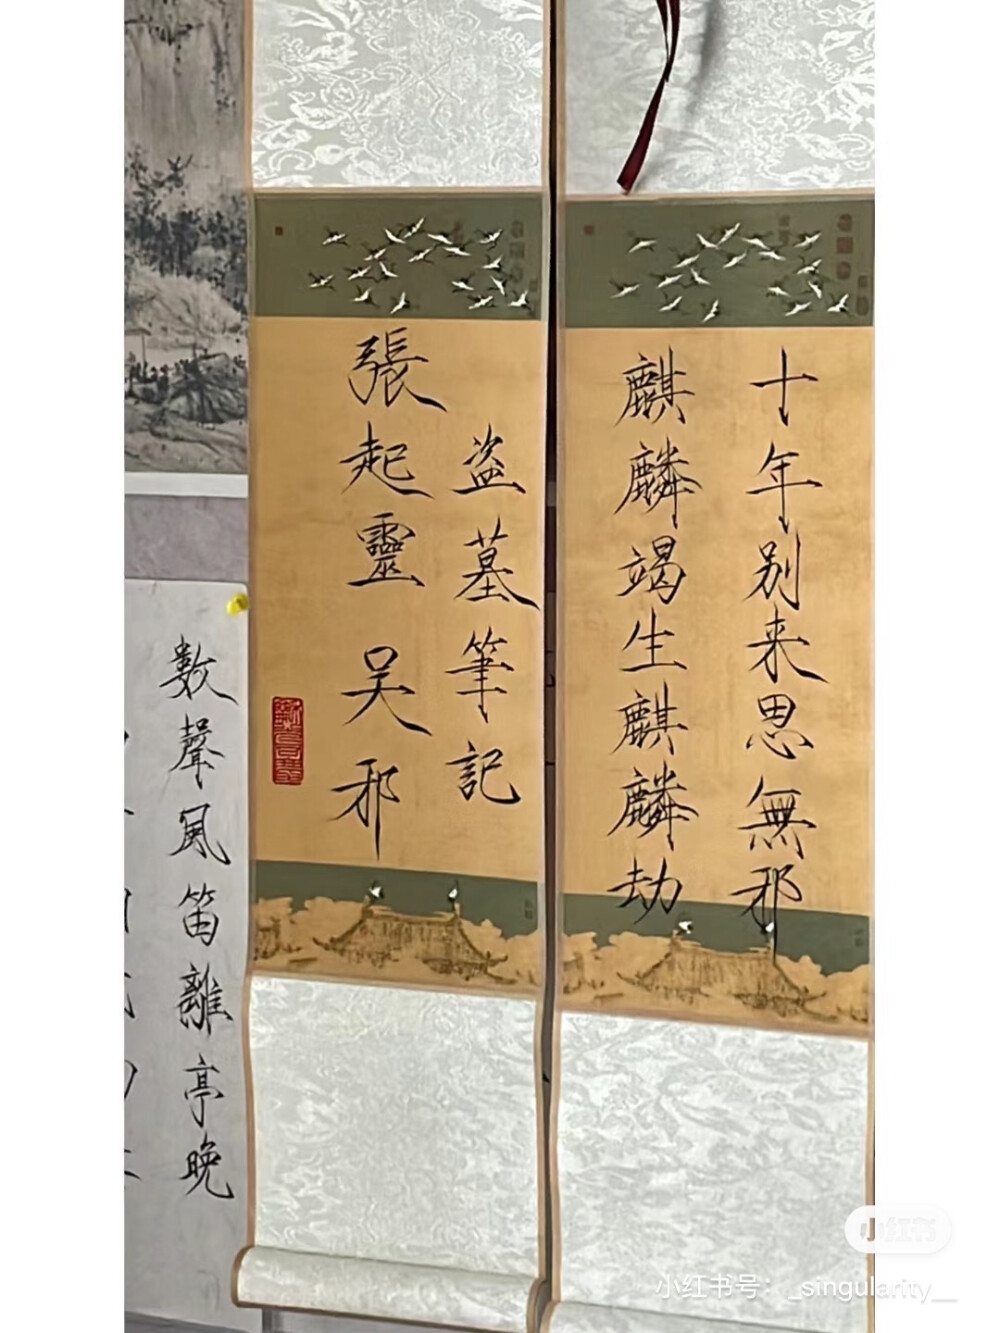 十年别来思無邪
麒麟竭生麒麟劫
盗墓筆記
張起靈 吴邪
數聲風笛離亭晚
小红书
小红书号：_singularity__